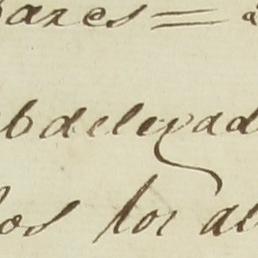 ares = a
bdelegad
los los al